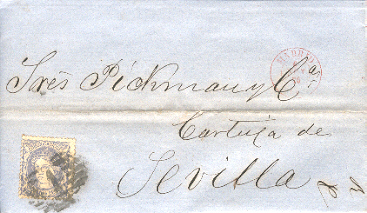 MADRID
Sres Pickman y Cª
Cartuja de
Sevilla